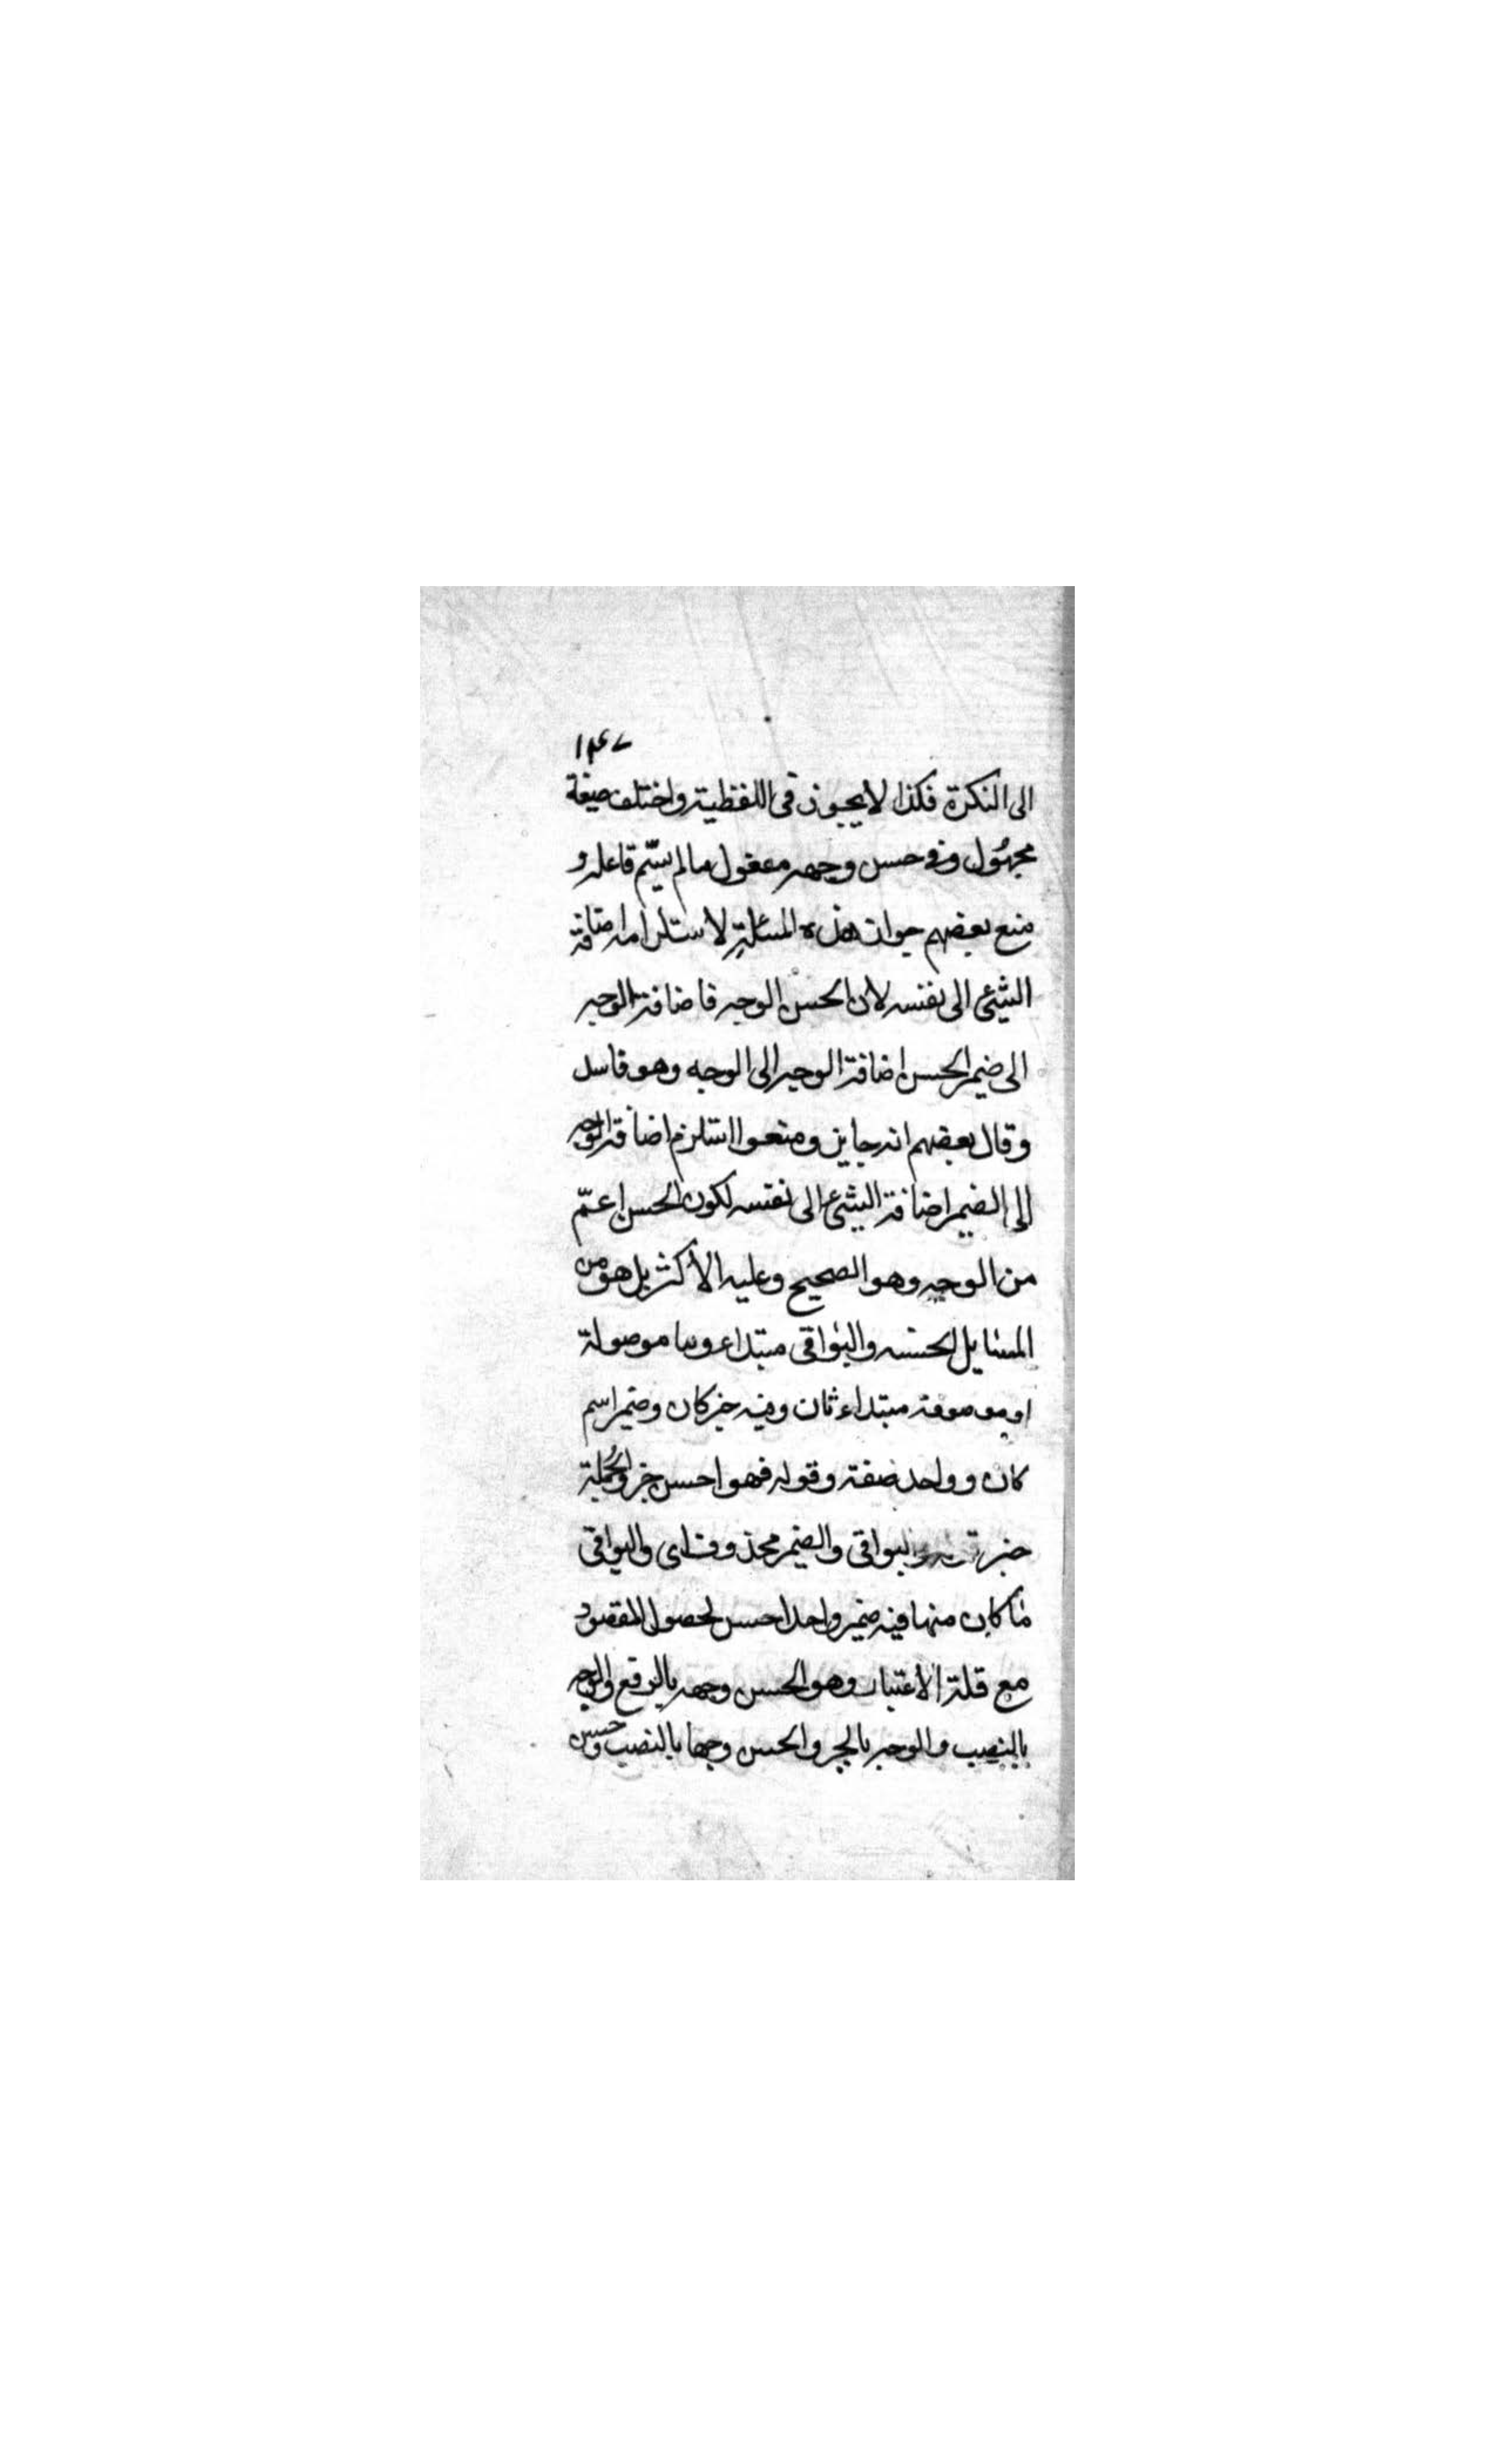 ١٤٧
الى النكرة فكذا لا يجوز فى اللفظية واختلف صيغة
مجهُول وفى حسن وجهه مفعول مالم يسّم فاعله و
منع بعضهم جواز هذه المسئلةِ لاستلزامه اضافة
الشيئ الى نفسه لان الحسن الوجه فاضافة الوجه
الى ضمير الحسن اضافة الوجه الى الوجه وهو فاسد
وقال بعضهم انه جايز ومنعوا استلزم اضافة الوجه
الى الضمير اضافة الشيئ الى نفسه لكون الحسن اعمّ
من الوجه وهو الصحيح وعليه الأكثر بل هو من
المسايل الحسنه والبواقى مبتداء وما موصولة
او موصوفة مبتداء ثان وفيه خبر كان وضمير اسم
كان وواحد صفته وقوله فهو احسن خبر والجُملة
خبر البواقى والضمير محذوف اى والبواقى
ما كان منها فيه ضمير واحد احسن لحصول المقصود
مع قلة الاعتبار وهو الحسن وجهه بالرفع والوجه
بالنصب والوجه بالجر والحسن وجها بالنصب وحسن